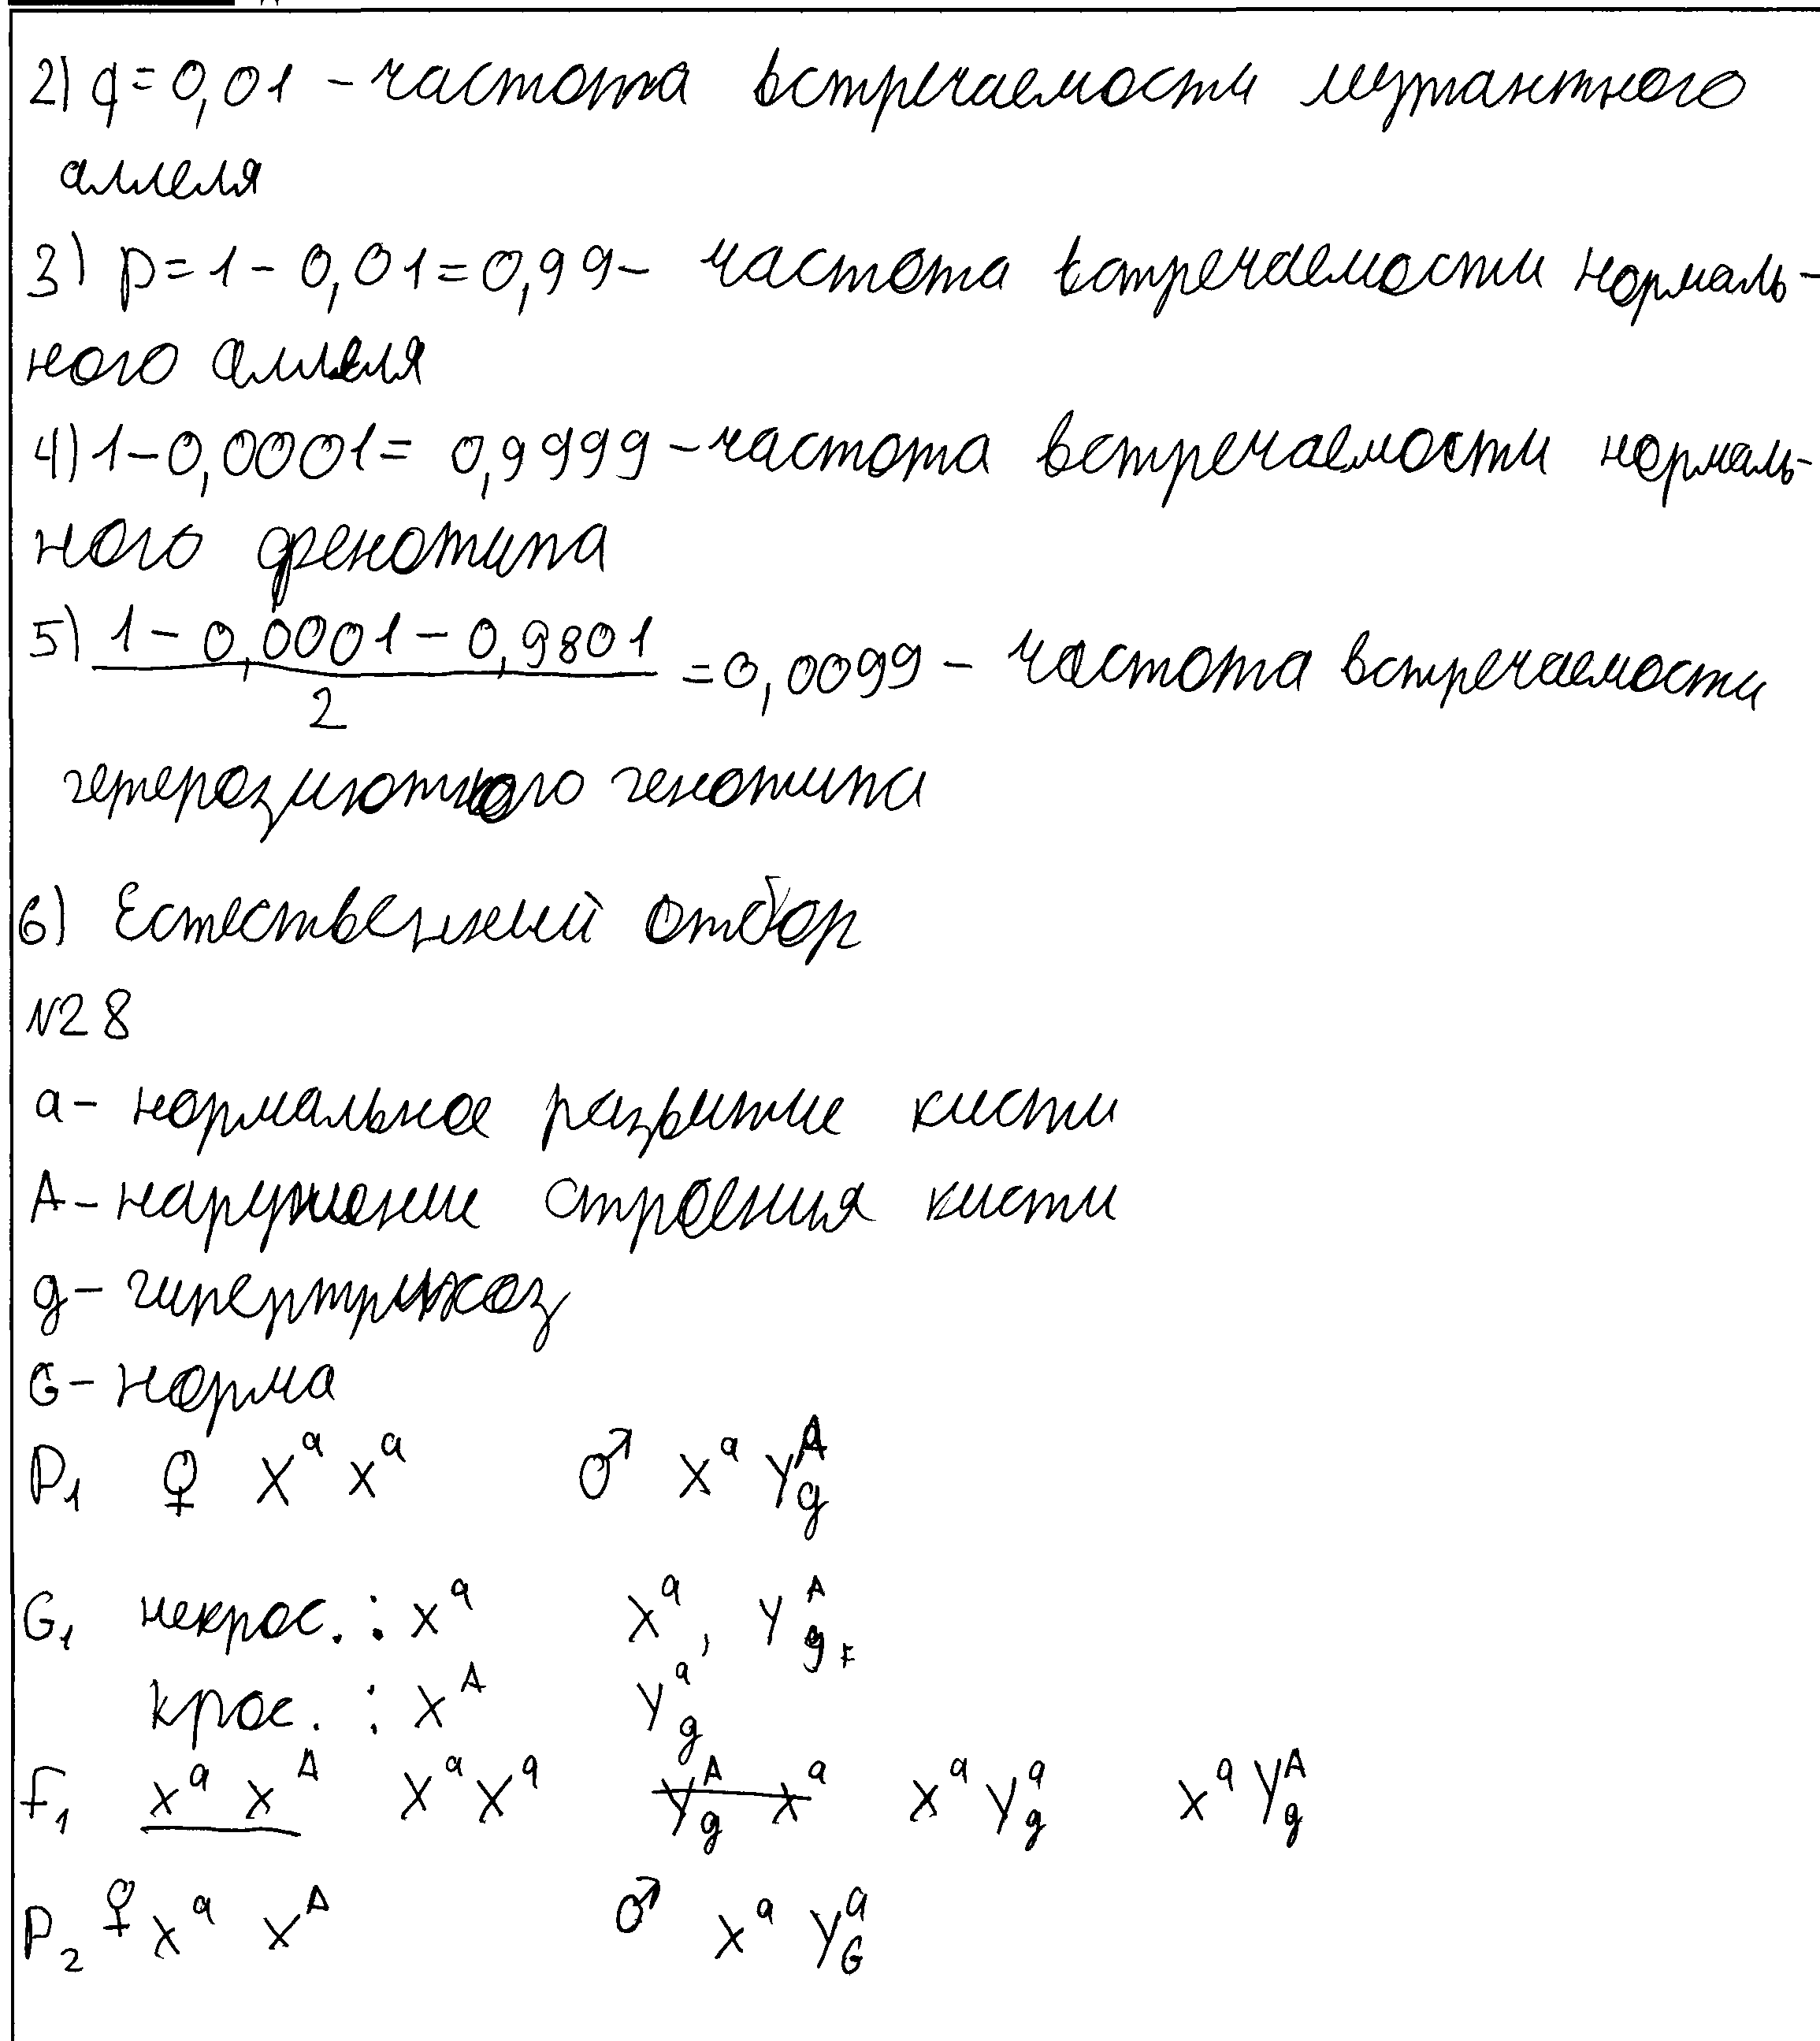 2) q = 0,01 - частота встречаемости мутантного
аллеля
3) p = 1 - 0,01 = 0,99 - частота встречаемости нормаль-
ного аллеля
4) 1 - 0,0001 = 0,9999 - частота встречаемости нормаль-
ного фенотипа
5) (1 - 0,0001 - 0,9801) / 2 = 0,0099 - частота встречаемости
гетерозиготного генотипа
6) Естественный отбор
N28
a - нормальное развитие кисти
A - нарушение строения кисти
g - гипертрихоз
G - норма
P₁ ♀ XᵃXᵃ ♂ XᵃY^A_g
G₁ некрос. : Xᵃ Xᵃ, Y^A_g
крос. : X^A Y^a_g
F₁ XᵃX^A XᵃXᵃ Y^A_g Xᵃ XᵃY^a_g XᵃY^A_g
P₂ ♀ XᵃX^A ♂ XᵃY^a_G